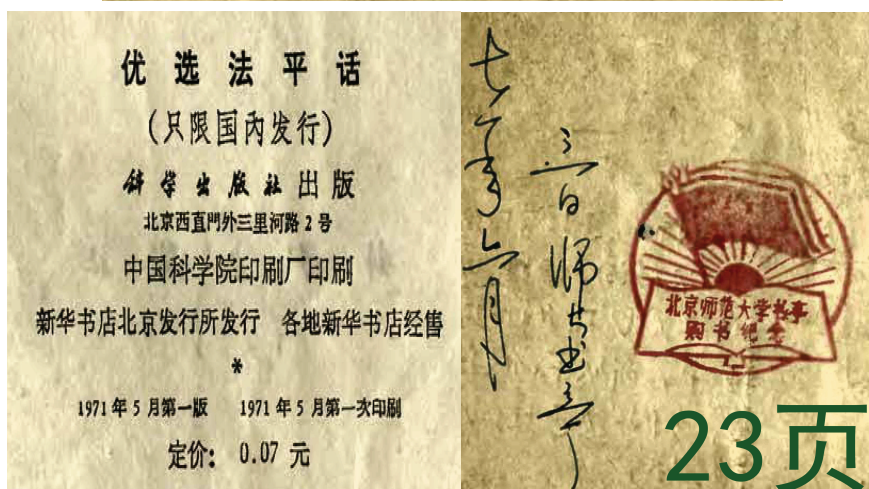 优选法平话
(只限国内发行)
科学出版社出版
北京西直門外三里河路 2 号
中国科学院印刷厂印刷
新华书店北京发行所发行 各地新华书店经售
*
1971 年 5 月第一版 1971 年 5 月第一次印刷
定价： 0.07 元
年六月
三日 师大书亭
北京师范大学书亭
购书纪念
23页